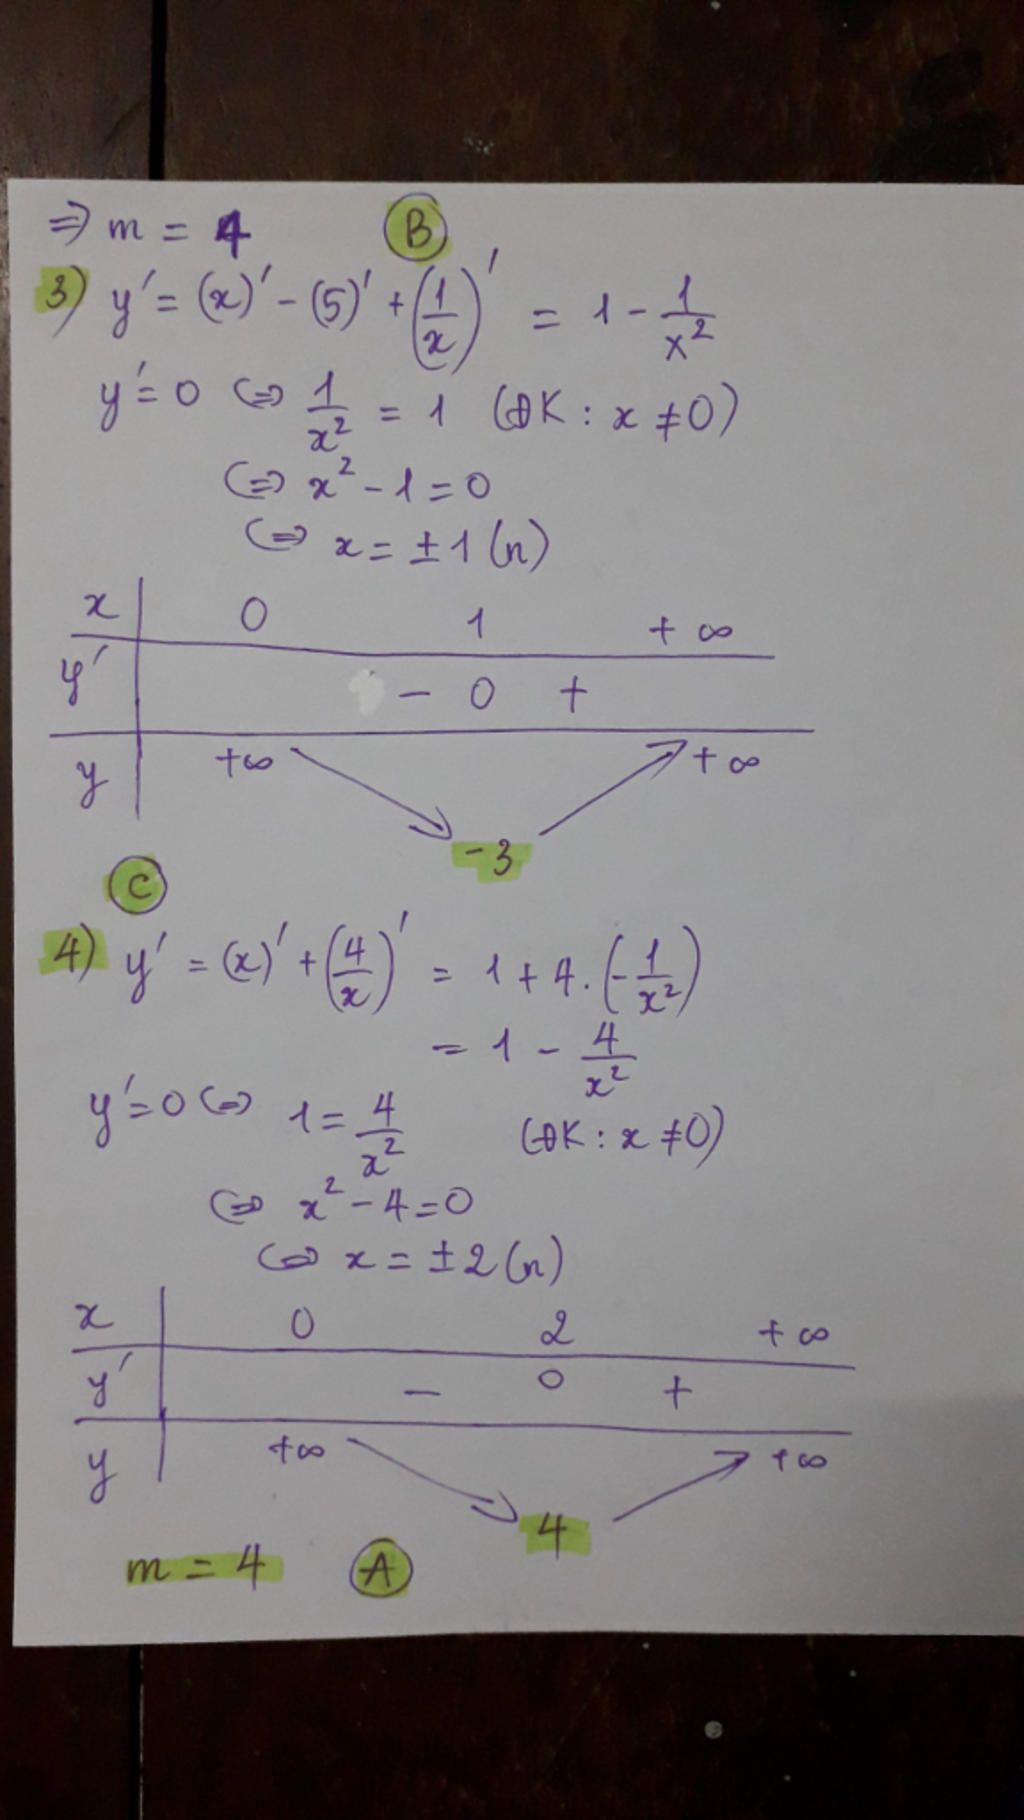 ⇒ m = 4 (B)
3) y' = (x)' - (5)' + (1/x)' = 1 - 1/x²
y' = 0 ⇔ 1/x² = 1 (ĐK : x ≠ 0)
⇔ x² - 1 = 0
⇔ x = ±1 (n)
x 0 1 +∞
y' - 0 +
y +∞ ↘ -3 ↗ +∞
(C)
4) y' = (x)' + (4/x)' = 1 + 4. (-1/x²)
= 1 - 4/x²
y' = 0 ⇔ 1 = 4/x² (ĐK : x ≠ 0)
⇔ x² - 4 = 0
⇔ x = ±2 (n)
x 0 2 +∞
y' - 0 +
y +∞ ↘ 4 ↗ +∞
m = 4 (A)